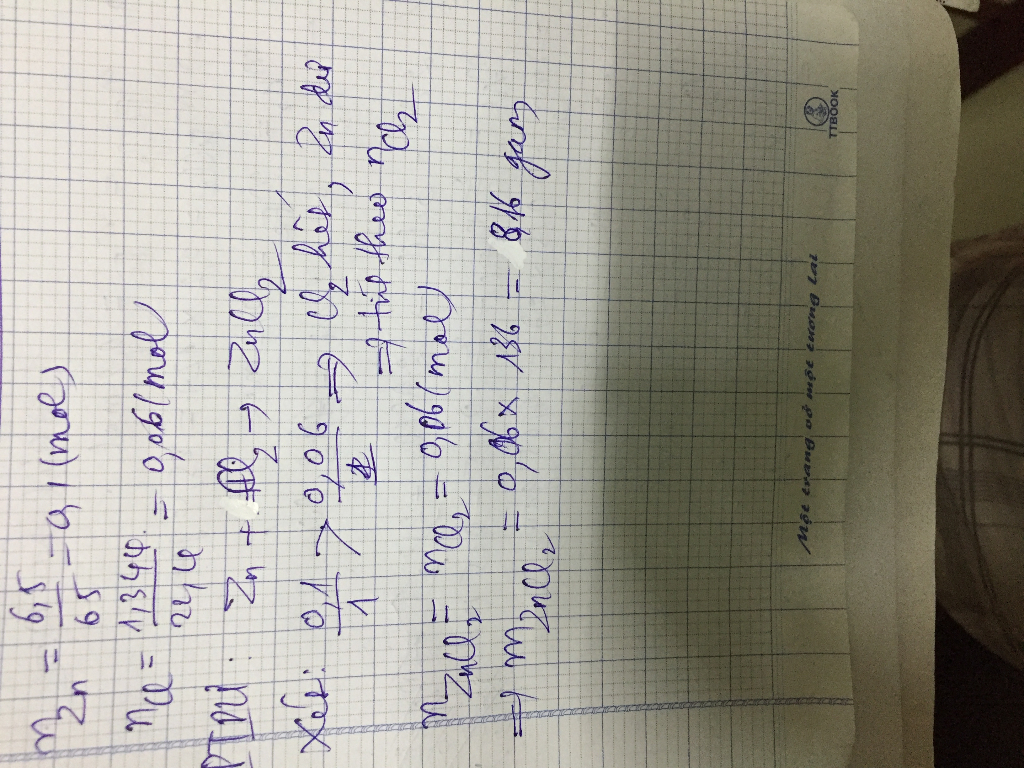 n Zn = 6,5/65 = 0,1 (mol)
n Cl = 1,344/22,4 = 0,06 (mol)
PTPU: Zn + Cl2 → ZnCl2
Xét: 0,1/1 > 0,06/1 ⇒ Cl2 hết, Zn dư
⇒ tính theo nCl2
nZnCl2 = nCl2 = 0,06 (mol)
⇒ m ZnCl2 = 0,06 x 136 = 8,16 gam
Một trang vở một tương lai
TTBOOK